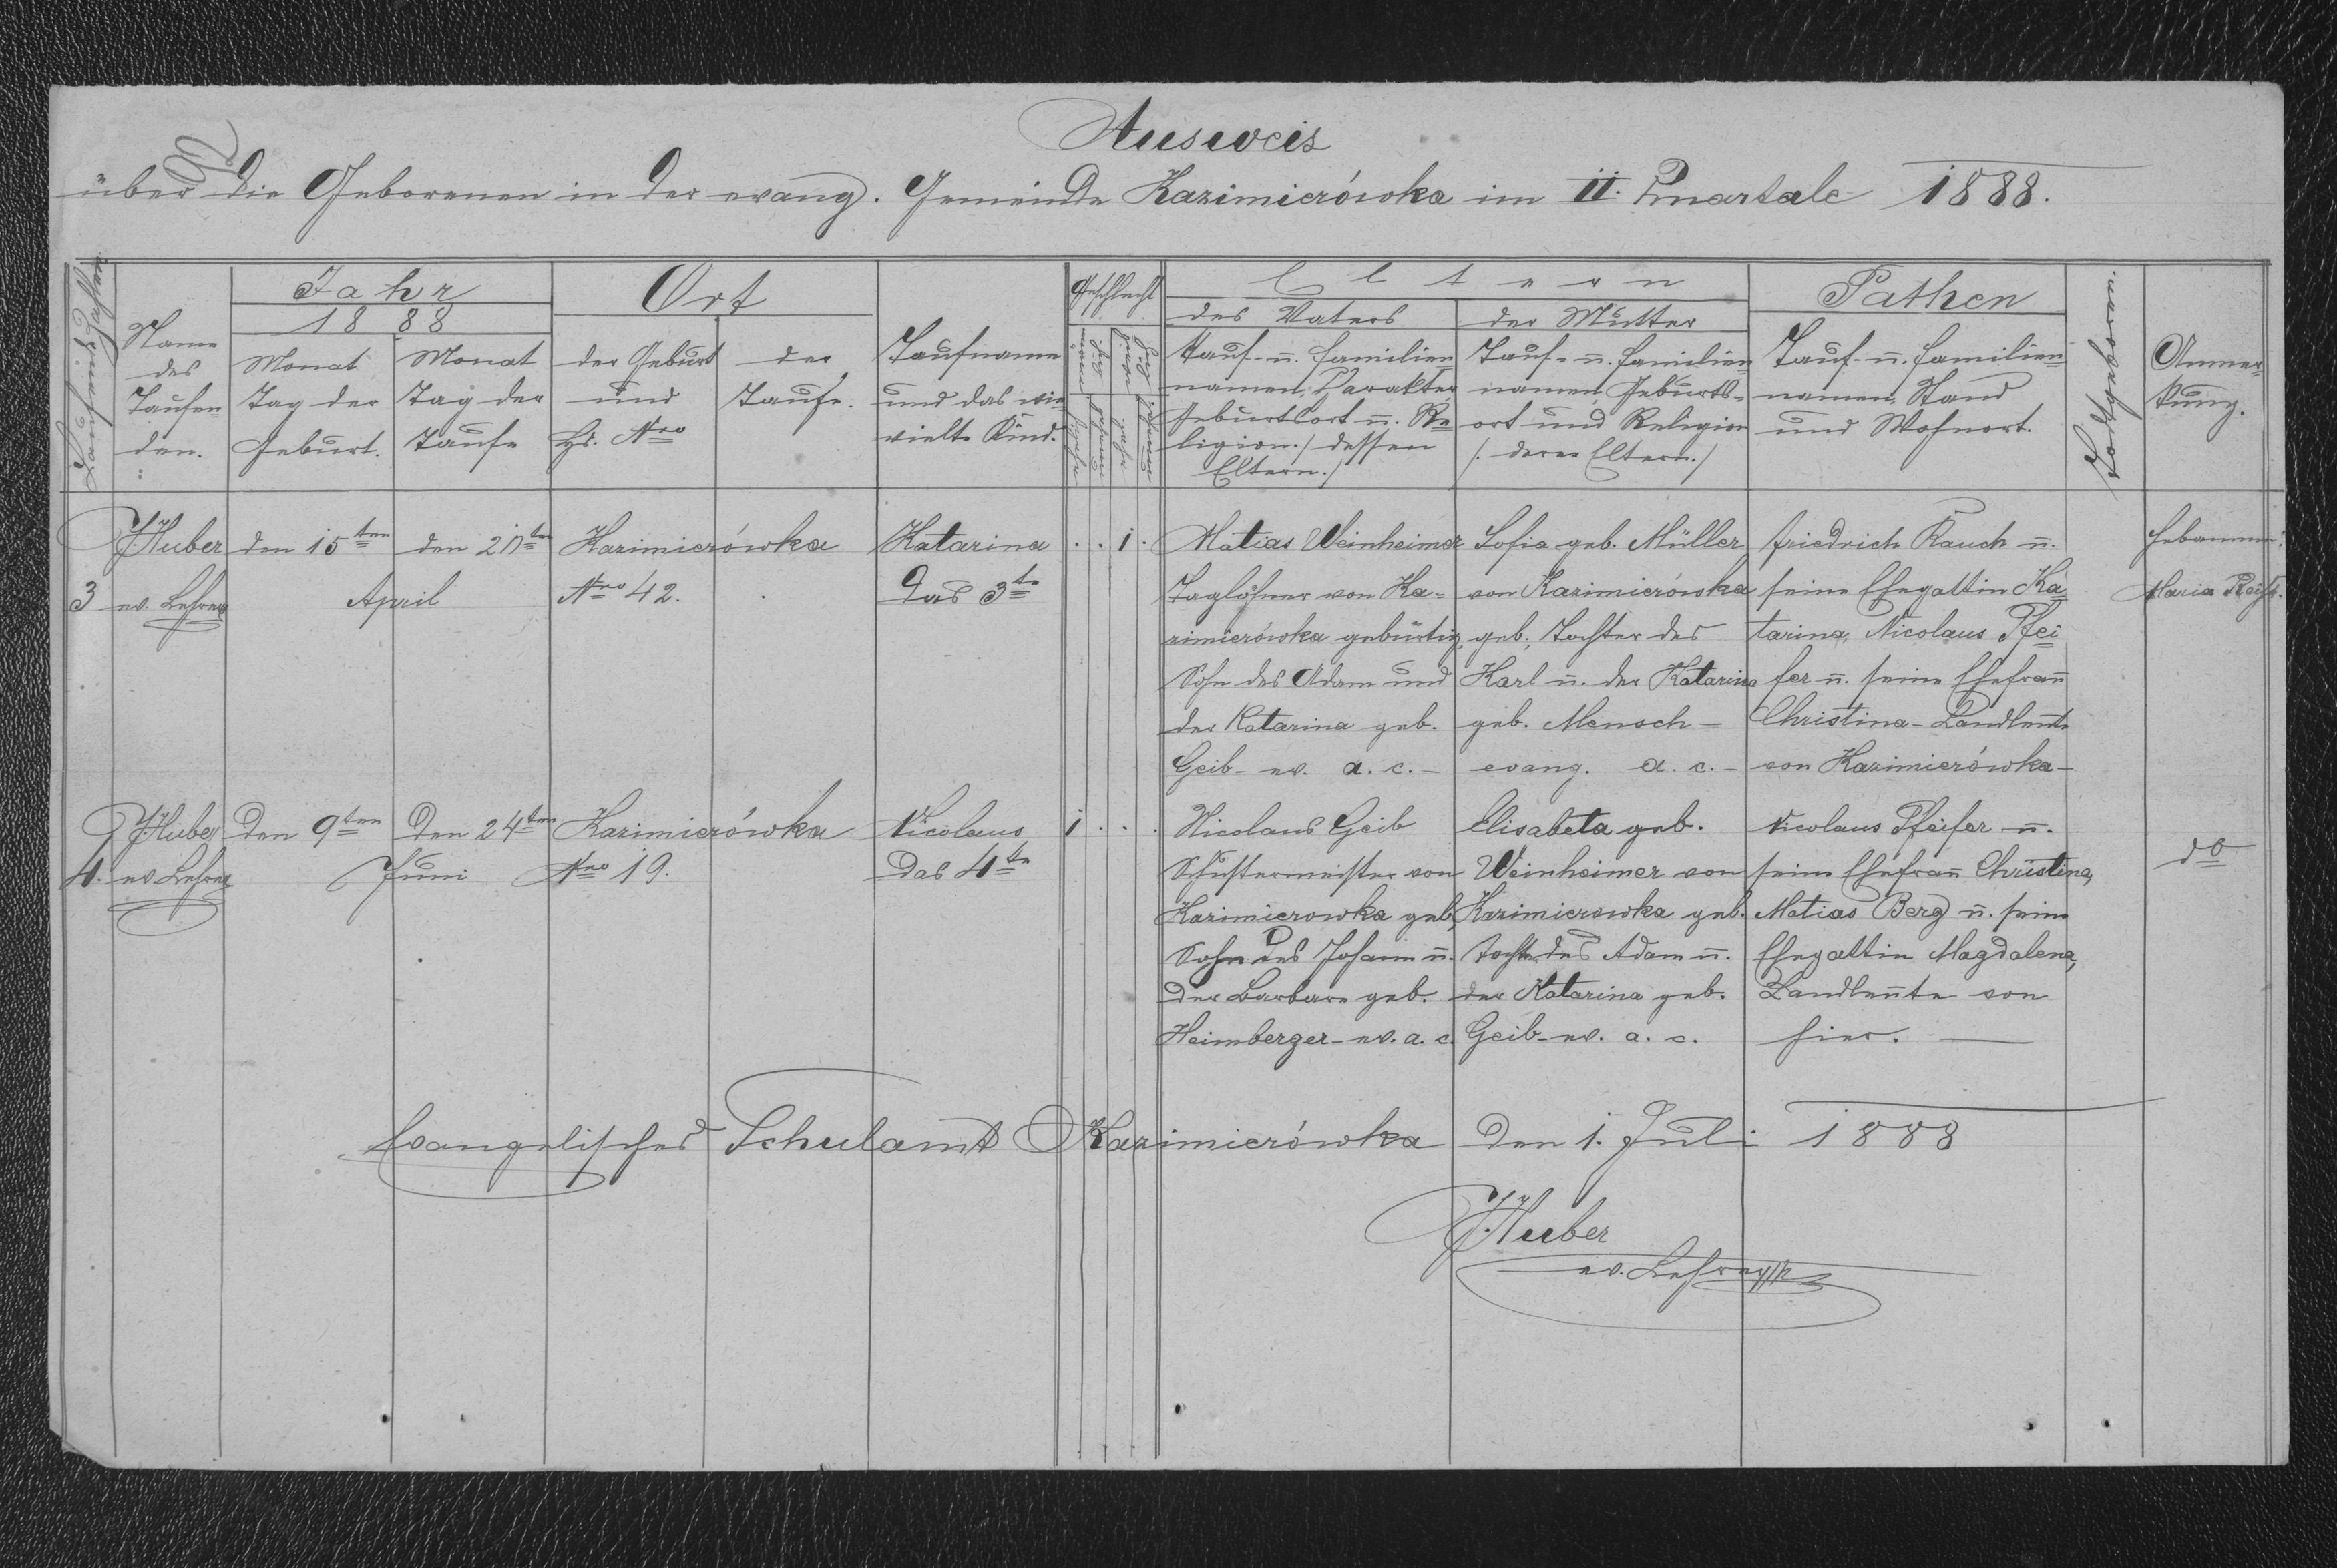 Ausweis
über die Geborenen in der evang. Gemeinde Kazimierówka im II. Quartale 1888.
Laufende Zahlen
Name
des
Taufen=
den.
Jahr
1888
Monat
Tag der
Geburt.
Monat
Tag der
Taufe
Ort
der Geburt
und
Hs. Nro
der
Taufe.
Taufname
und das wie
vielte Kind.
Geschlecht
Eltern
des Vaters
Tauf- u. Familien
namen, Karakter
Geburtsort u. Re
ligion./ dessen
Eltern./
der Mutter
Tauf- u. Familien
namen, Geburts=
ort und Religion
/. deren Eltern./
Pathen
Tauf- u. Familien
namen, Stand
und Wohnort.
Todtgeboren.
Anmer=
kung.
3
J. Huber
ev. Lehrer
den 15ten
den 20ten
April
Kazimierówka
Nro 42.
Katarina
Das 3te
. . 1 .
Matias Weinheimer
Taglöhner von Ka=
zimierówka gebürtig,
Sohn des Adam und
der Katarina geb.
Geib - ev. a. c. -
Sofia geb. Müller
von Kazimierówka
geb., Tochter des
Karl u. der Katarina
geb. Mensch -
evang. a. c. -
Friedrich Rauch u.
seine Ehegattin Ka
tarina, Nicolaus Pfei
fer u. seine Ehefrau
Christina - Landleute
von Kazimierówka -
Hebamme:
Maria
4.
J. Huber
ev. Lehrer
Den 9ten
Den 24ten
Juni
Kazimierówka
Nro 19.
Nicolaus
Das 4te
1 . . .
Nicolaus Geib
Schustermeister von
Kazimierowka geb,
Sohn des Johann u.
der Barbara geb.
Heimberger - ev. a. c.
Elisabeta geb.
Weinheimer von
Kazimierowka geb.
Tochter des Adam u.
der Katarina geb.
Geib - ev. a. c.
Nicolaus Pfeifer u.
seine Ehefrau Christina,
Matias Berg u. seine
Ehegattin Magdalena,
Landleute von
hier. -
do
Evangelisches Schulamt Kazimierówka den 1. Juli 1888
J. Huber
ev. Lehrer